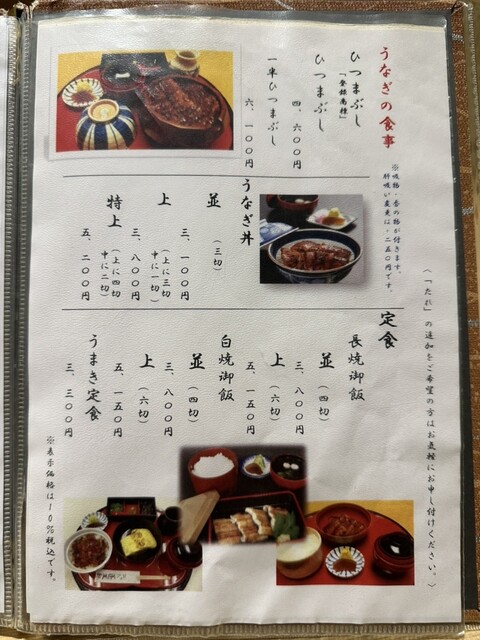 うなぎの食事
ひつまぶし
「登録商標」
ひつまぶし
四、六〇〇円
一半ひつまぶし
六、一〇〇円
※吸物・香の物が付きます。
肝吸い変更は+二五〇円です。
(「たれ」の追加をご希望の方はお気軽にお申し付けください。)
うなぎ丼
並
(三切)
三、一〇〇円
上
(上に三切
中に一切)
三、八〇〇円
特上
(上に四切
中に二切)
五、二〇〇円
定食
長焼御飯
並
(四切)
三、八〇〇円
上
(六切)
五、一五〇円
白焼御飯
並
(四切)
三、八〇〇円
上
(六切)
五、一五〇円
うまき定食
三、三〇〇円
※表示価格は10%税込です。